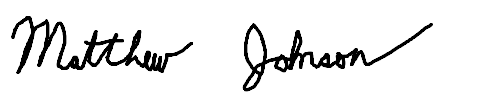 Matthew Johnson